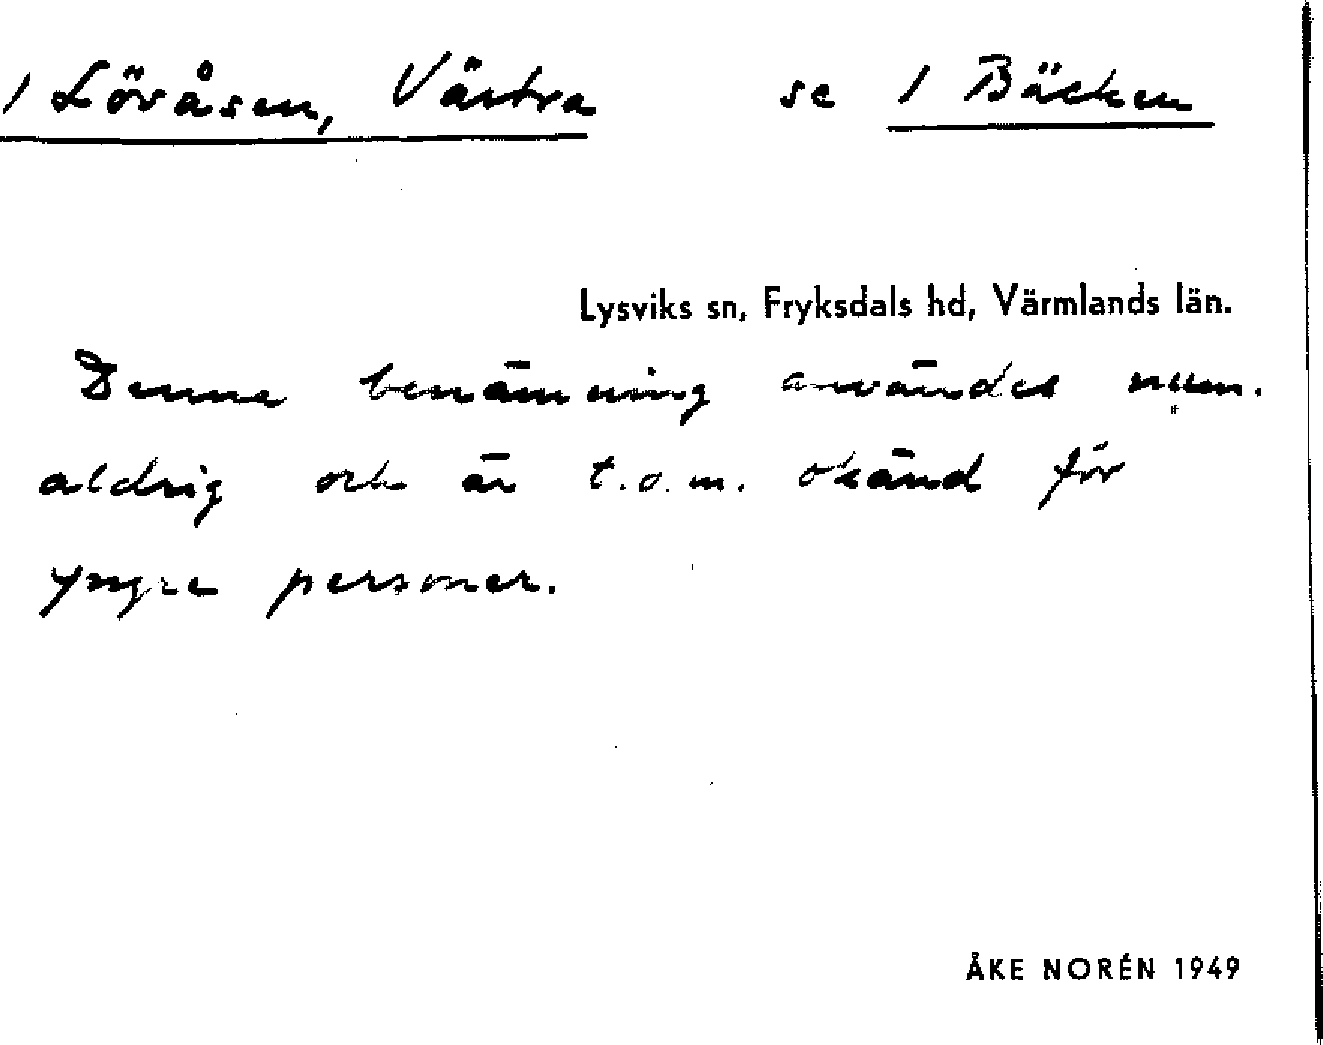 1 Lövåsen, Västra se 1 Bäcken
Lysviks sn, Fryksdals hd, Värmlands län.
Denna benämning användes num.
aldrig och är t.o.m. okänd för
yngre personer.
ÅKE NORÉN 1949